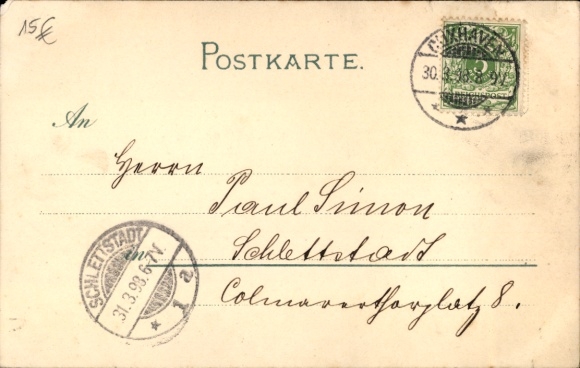 15€
POSTKARTE.
CUXHAVEN
30.3.98. 8-9V.
REICHSPOST
An
Herrn
Paul Simon
in Schlettstadt
Colmarerthorplatz 8.
SCHLETTSTADT
31.3.98. 6-7V.
* 1 a